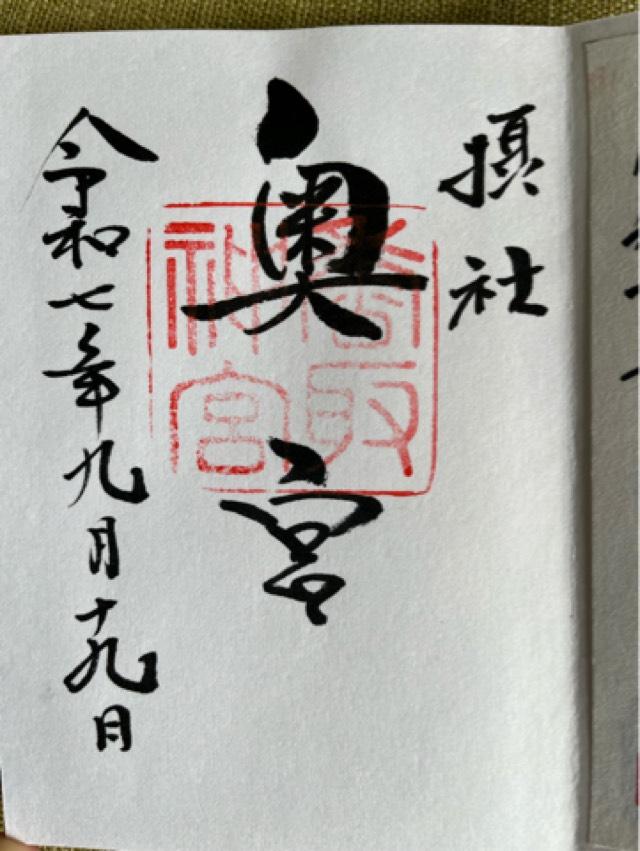 摂社
奥宮
香取
神宮
令和七年九月十九日